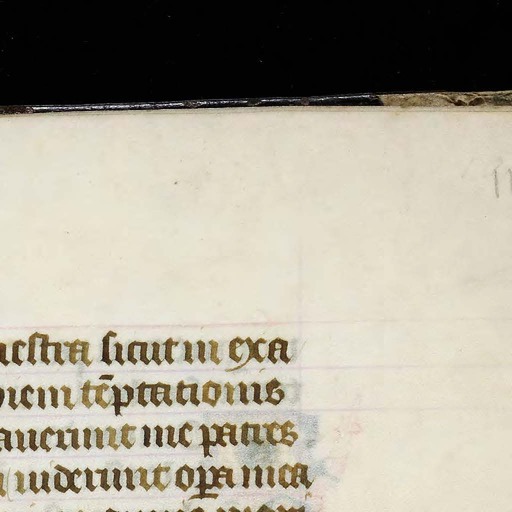 uestra sicut in exa
diem tēptationis
tauerunt me patres
uiderunt oꝑa mea